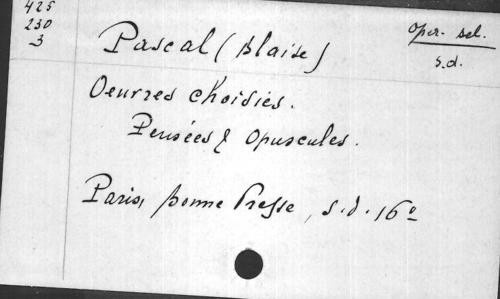 425
230
3
Pascal (Blaise)
Oper. sel.
s.d.
Oeuvres choisies.
Pensées & Opuscules.
Paris, Bonne Presse, s.d. 16º